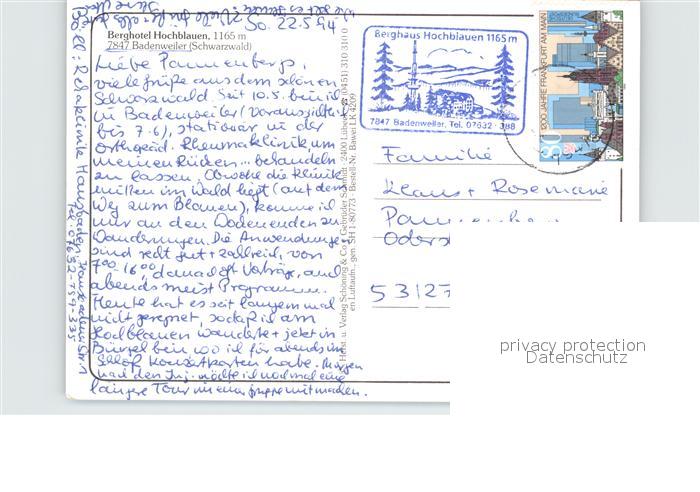 So. 22.5.94
Berghotel Hochblauen, 1165 m
7847 Badenweiler (Schwarzwald)
Liebe Pannenbergs,
viele Grüße aus dem schönen
Schwarzwald. Seit 10.5. bin ich
in Badenweiler (voraussichtlich
bis 7.6), stationär in der
Orthopäd. Rheumaklinik, um
meinen Rücken... behandeln
zu lassen. Obwohl die Klinik
mitten im Wald liegt (auf dem
Weg zum Blauen), komme ich
nur an den Wochenenden zu
Wanderungen. Die Anwendungen
sind recht gut + zahlreich, von
7.00-16.00, danach oft Vorträge, und
abends meist Programm.
Heute hat es seit langem mal
nicht geregnet, sodaß ich am
Hochblauen wanderte + jetzt in
Bürgel bin, wo ich für abends im
Schloß Konzertkarten habe. Morgen
möchte ich nochmal eine
längere Tour in einer Gruppe mitmachen.
Tel. 07632-759-335
Herst. u. Verlag Schöning & Co. + Gebrüder Schmidt · 2400 Lübeck (0451) 310 310 0
en Luftaufn., gen. SH 1-80773 · Bestell-Nr. Bawei LK 4209
Berghaus Hochblauen 1165 m
7847 Badenweiler, Tel. 07632 · 388
1200 JAHRE FRANKFURT AM MAIN
80
Familie
Klaus + Rosemarie
53127
privacy protection
Datenschutz